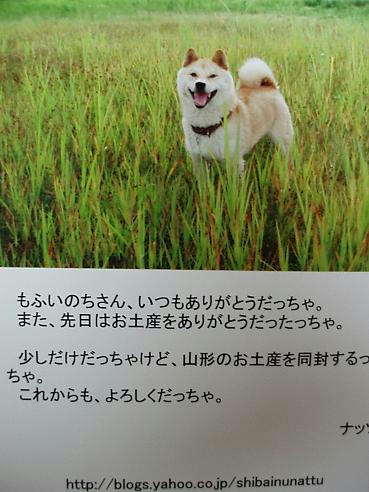 もふいのちさん、いつもありがとうだっちゃ。
また、先日はお土産をありがとうだったっちゃ。
少しだけだっちゃけど、山形のお土産を同封するっ
ちゃ。
これからも、よろしくだっちゃ。
ナッツ
http://blogs.yahoo.co.jp/shibainunattu